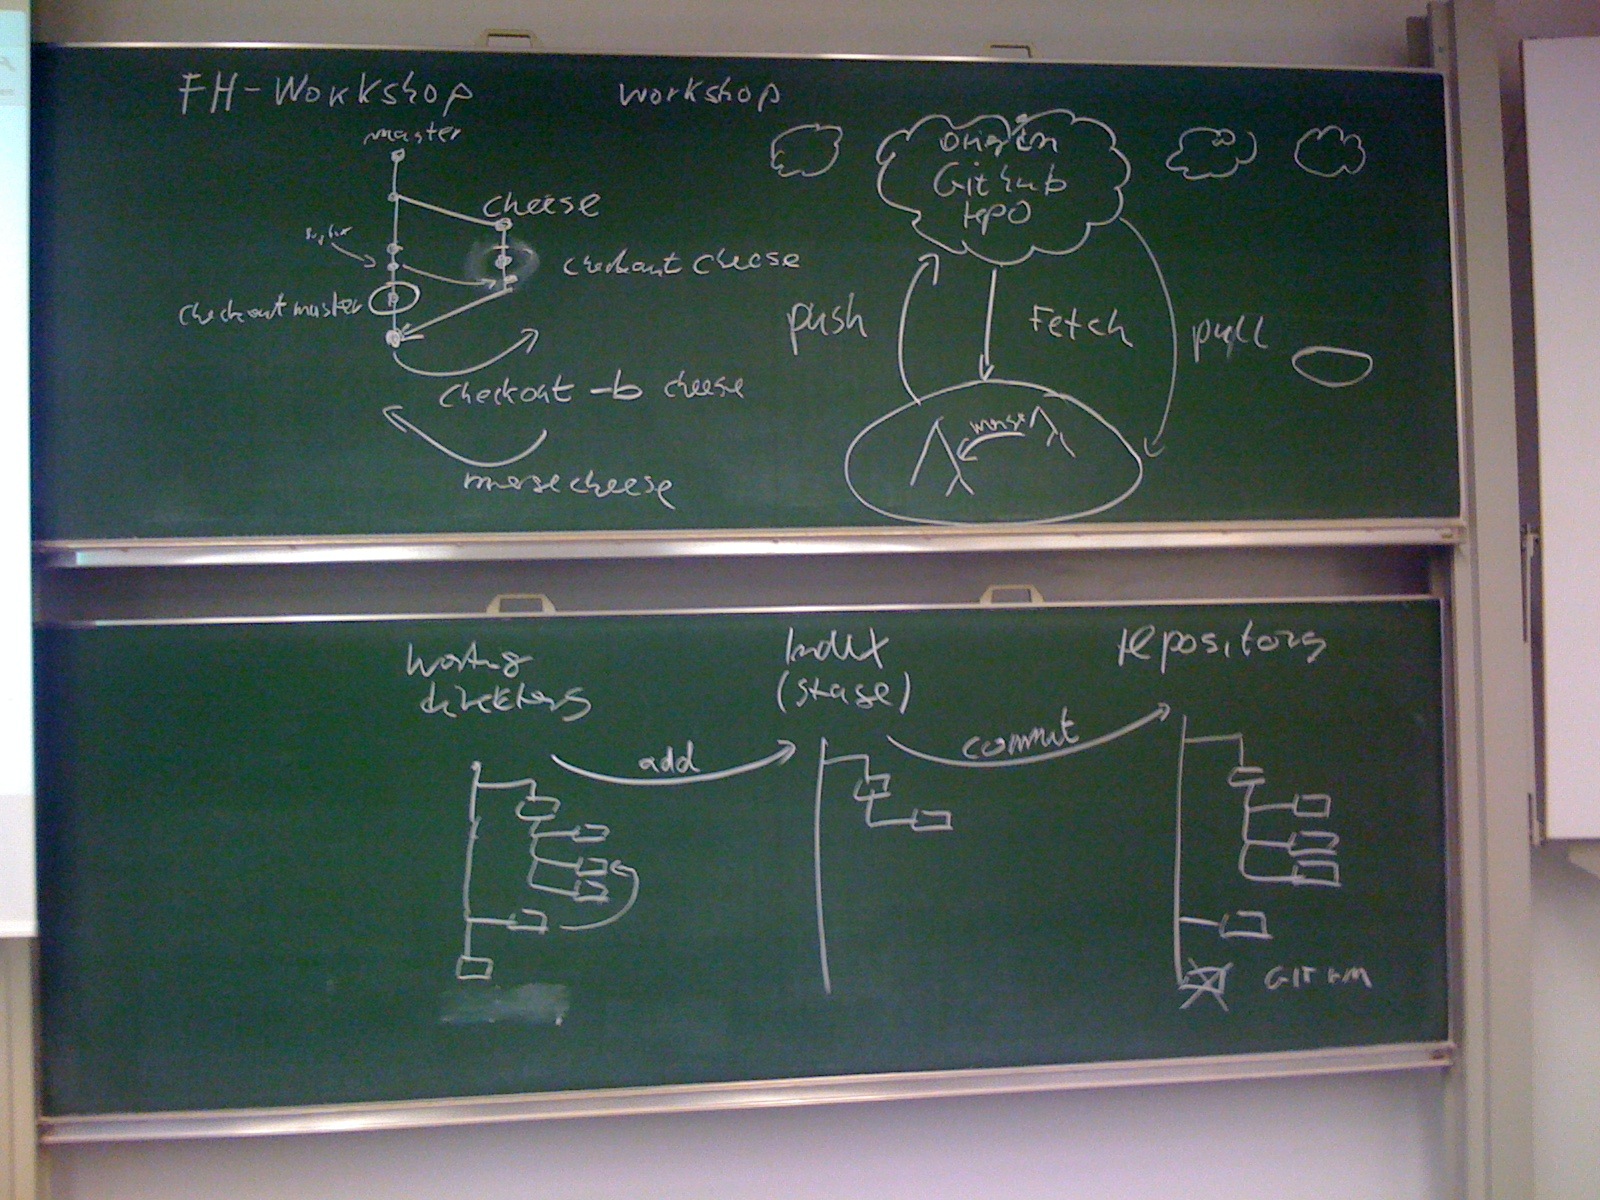 FH-Workshop
workshop
master
cheese
checkout cheese
checkout master
checkout -b cheese
merge cheese
origin
Github
repo
push
Fetch
pull
merge
Working
direktory
Index
(stage)
repository
add
commit
GIT rm